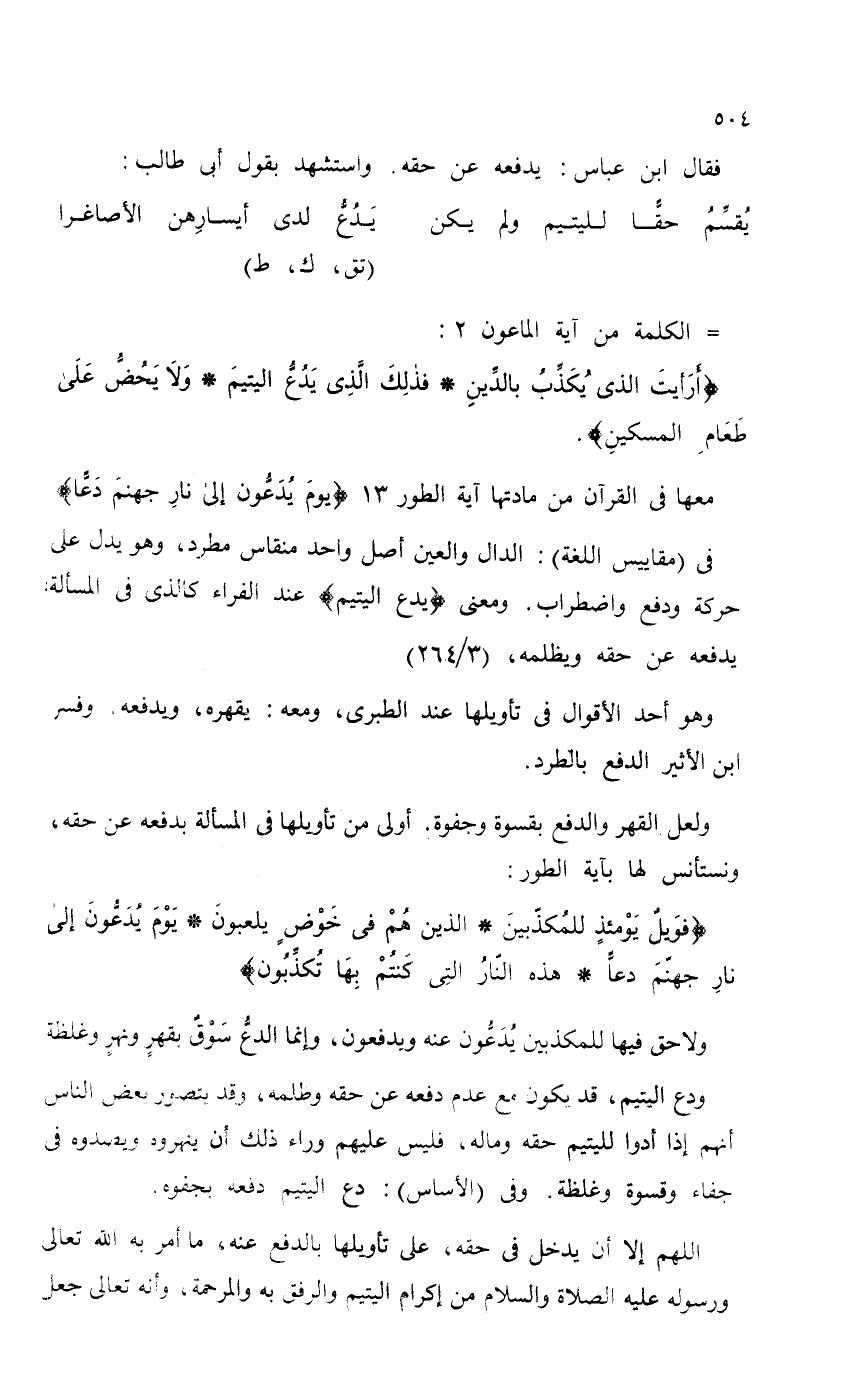 ٥٠٤
فقال ابن عباس : يدفعه عن حقه. واستشهد بقول أبى طالب :
يُقسِّمُ حقًّا لليتيم ولم يكن يَدُعُّ لدى أيسارِهن الأصاغرا
(تق، ك، ط)
= الكلمة من آية الماعون ٢ :
﴿أَرَأيتَ الذى يُكَذِّبُ بالدِّينِ * فذٰلِكَ الَّذِى يَدُعُّ اليتيمَ * وَلَا يَحُضُّ عَلَىٰ
طَعَامِ المسكينِ﴾ .
معها فى القرآن من مادتها آية الطور ١٣ ﴿يومَ يُدَعُّون إلىٰ نارِ جهنمَ دَعًّا﴾
فى (مقاييس اللغة) : الدال والعين أصل واحد منقاس مطرد، وهو يدل على
حركة ودفع واضطراب. ومعنى ﴿يدع اليتيم﴾ عند الفراء كالذى فى المسألة:
يدفعه عن حقه ويظلمه، (٢٦٤/٣)
وهو أحد الأقوال فى تأويلها عند الطبرى، ومعه : يقهره، ويدفعه. وفسر
ابن الأثير الدفع بالطرد.
ولعل القهر والدفع بقسوة وجفوة. أولى من تأويلها فى المسألة بدفعه عن حقه،
ونستأنس لها بآية الطور :
﴿فوَيلٌ يَوْمئذٍ للمُكذّبينَ * الذين هُمْ فى خَوْضٍ يلعبونَ * يَوْمَ يُدَعُّونَ إلىٰ
نارِ جهنّمَ دعاًّ * هذه النّارُ التِى كَنتُمْ بِهَا تُكذِّبُون﴾
ولاحق فيها للمكذبين يُدَعُّون عنه ويدفعون، وإنما الدعُّ سَوْقٌ بقهرٍ ونهرٍ وغلظة
ودع اليتيم، قد يكون مع عدم دفعه عن حقه وظلمه، وقد يتصور بعض الناس
أنهم إذا أدوا لليتيم حقه وماله، فليس عليهم وراء ذلك أن ينهروه ويصدوه فى
جفاء وقسوة وغلظة. وفى (الأساس) : دع اليتيم دفعه بجفوه.
اللهم إلا أن يدخل فى حقه، على تأويلها بالدفع عنه، ما أمر به الله تعالى
ورسوله عليه الصلاة والسلام من إكرام اليتيم والرفق به والمرحمة، وأنه تعالى جعل